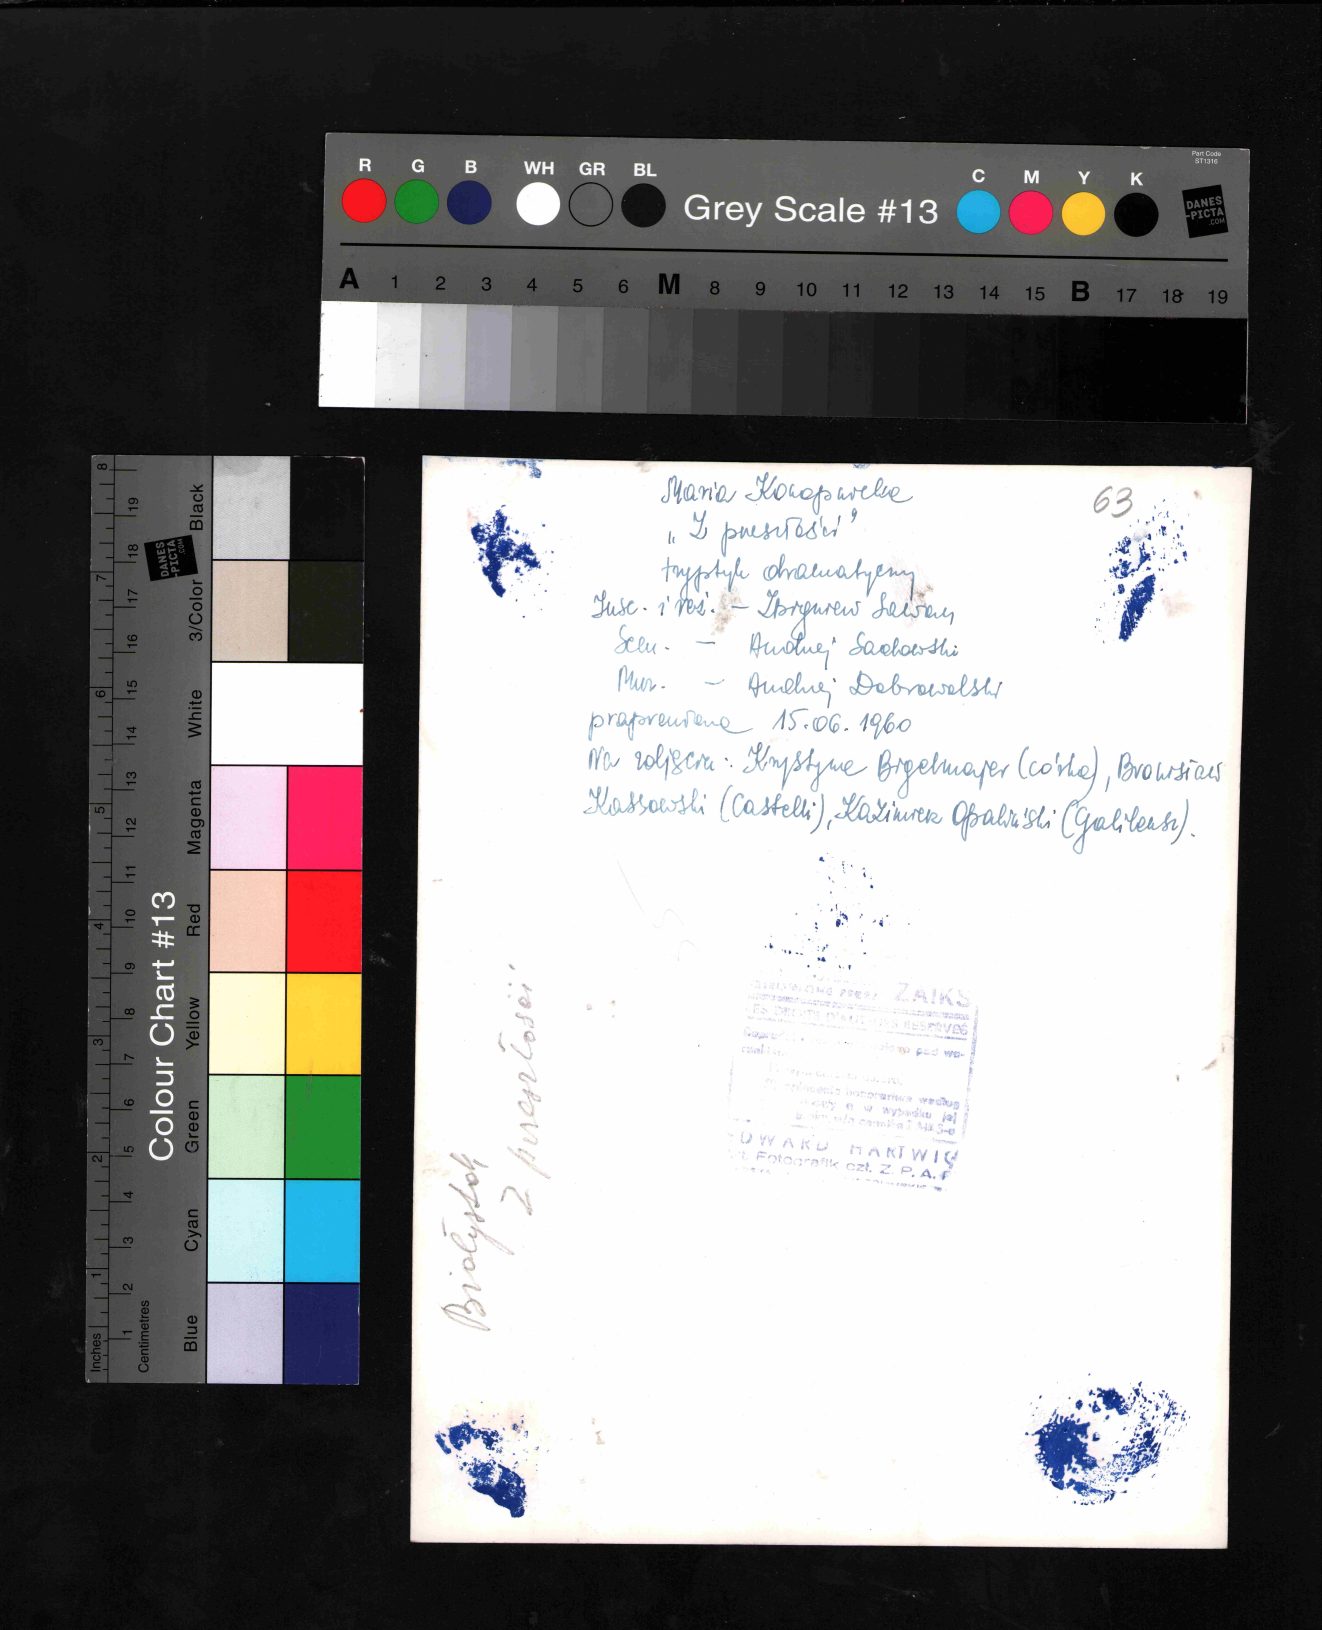 Part Code
ST1316
R G B WH GR BL
Grey Scale #13
C M Y K
DANES
-PICTA
.COM
A 1 2 3 4 5 6 M 8 9 10 11 12 13 14 15 B 17 18 19
Colour Chart #13
DANES
-PICTA
.COM
Black
3/Color
White
Magenta
Red
Yellow
Green
Cyan
Blue
8 7 6 5 4 3 2 1 Inches
19 18 17 16 15 14 13 12 11 10 9 8 7 6 5 4 3 2 1 Centimetres
63
Maria Konopnicka
„Z przeszłości”
tryptyk dramatyczny
Insc. i reż. – Zbigniew Sawan
Scen. – Andrzej Sadowski
Muz. – Andrzej Dobrowolski
prapremiera 15.06.1960
Na zdjęciu: Krystyna Brgelmajer (córka), Bronisław
Kassowski (Castelli), Kazimierz Opaliński (Galileusz).
Białystok
Z przeszłości
ZAIKS
RESERVES
pod wa-
honorarium według
w wypadku jej
EDWARD HARTWIG
Fotografik czł. Z. P. A. F